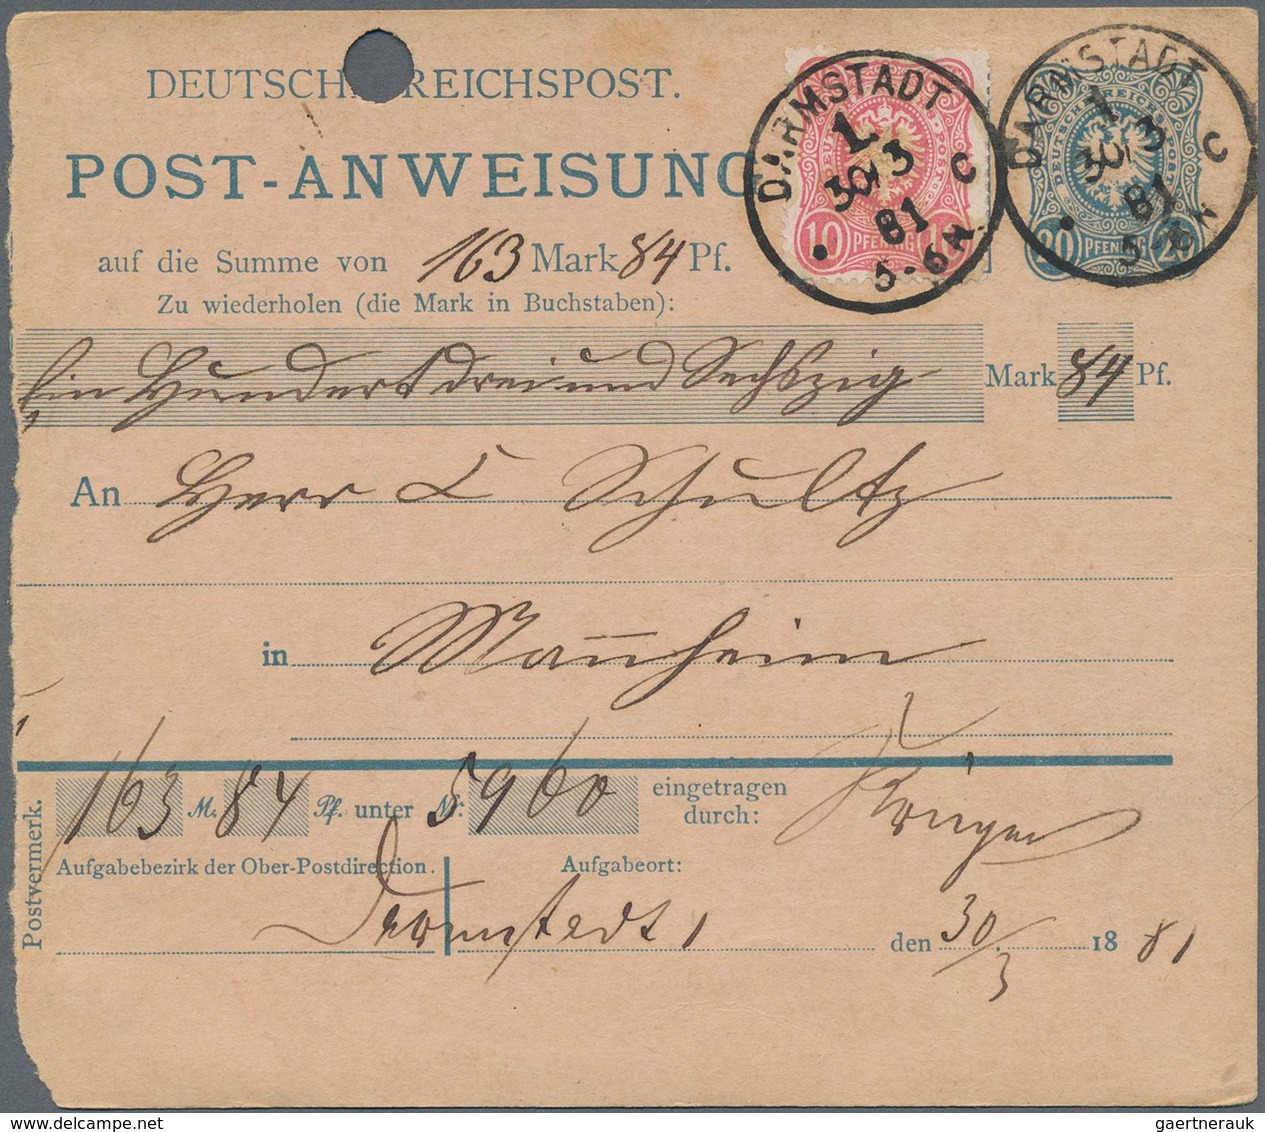 DEUTSCHE REICHSPOST.
POST-ANWEISUNG
auf die Summe von 163 Mark 84 Pf.
Zu wiederholen (die Mark in Buchstaben):
Ein Hundert drei und Sechszig Mark 84 Pf.
An Herr L Schultz
in Mannheim
163 M. 84 Pf. unter Nr. 5960 eingetragen durch: Krüger
Postvermerk.
Aufgabebezirk der Ober-Postdirection. Aufgabeort:
Darmstadt 1 den 30/3 18 81
DARMSTADT
1.
30/3
81
5-6N
C
10 PFENNIG 10
DARMSTADT
1.
30/3
81
5-6N
C
20 PFENNIG 20
gaertnerauk